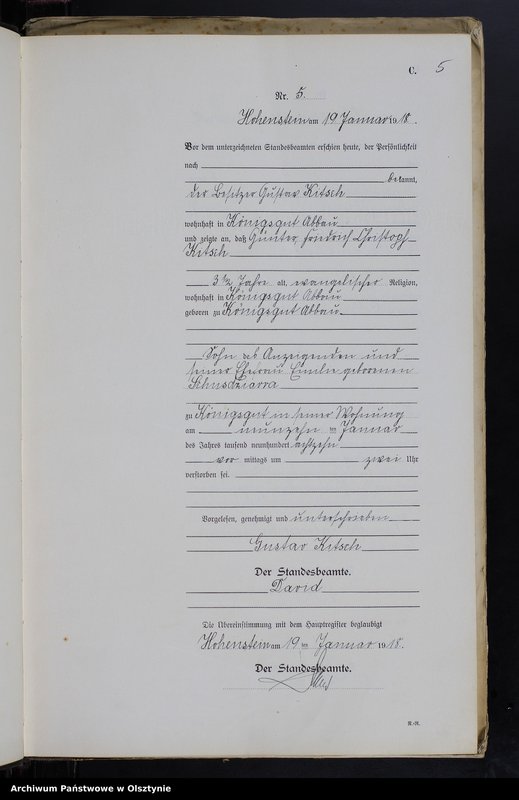 C. 5
Nr. 5.
Hohenstein am 19 Januar 1918.
Vor dem unterzeichneten Standesbeamten erschien heute, der Persönlichkeit
nach
bekannt,
der Besitzer Gustav Kitsch
wohnhaft in Königsgut Abbau
und zeigte an, daß Günter Friedrich Christoph
Kitsch
3 1/2 Jahre alt, evangelischer Religion,
wohnhaft in Königsgut Abbau
geboren zu Königsgut Abbau
Sohn des Anzeigenden und
seiner Ehefrau Emilie geborenen
zu Königsgut in seiner Wohnung
am neunzehn ten Januar
des Jahres tausend neunhundert achtzehn
vor mittags um zwei Uhr
verstorben sei.
Vorgelesen, genehmigt und unterschrieben
Gustav Kitsch
Der Standesbeamte.
David
Die Übereinstimmung mit dem Hauptregister beglaubigt
Hohenstein am 19 ten Januar 1918.
Der Standesbeamte.
R.-R.
Archiwum Państwowe w Olsztynie